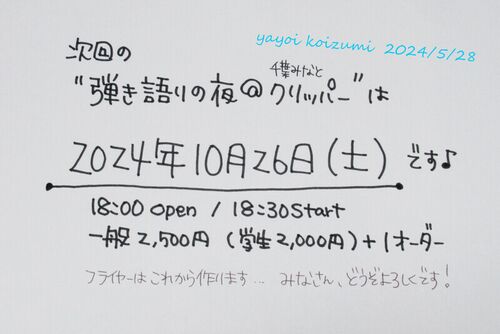 yayoi koizumi 2024/5/28
次回の
千葉みなと
"弾き語りの夜@クリッパー"は
2024年10月26日(土)です♪
18:00 open / 18:30 Start
一般2,500円 (学生2,000円)+1オーダー
フライヤーはこれから作ります... みなさん、どうぞよろしくです!